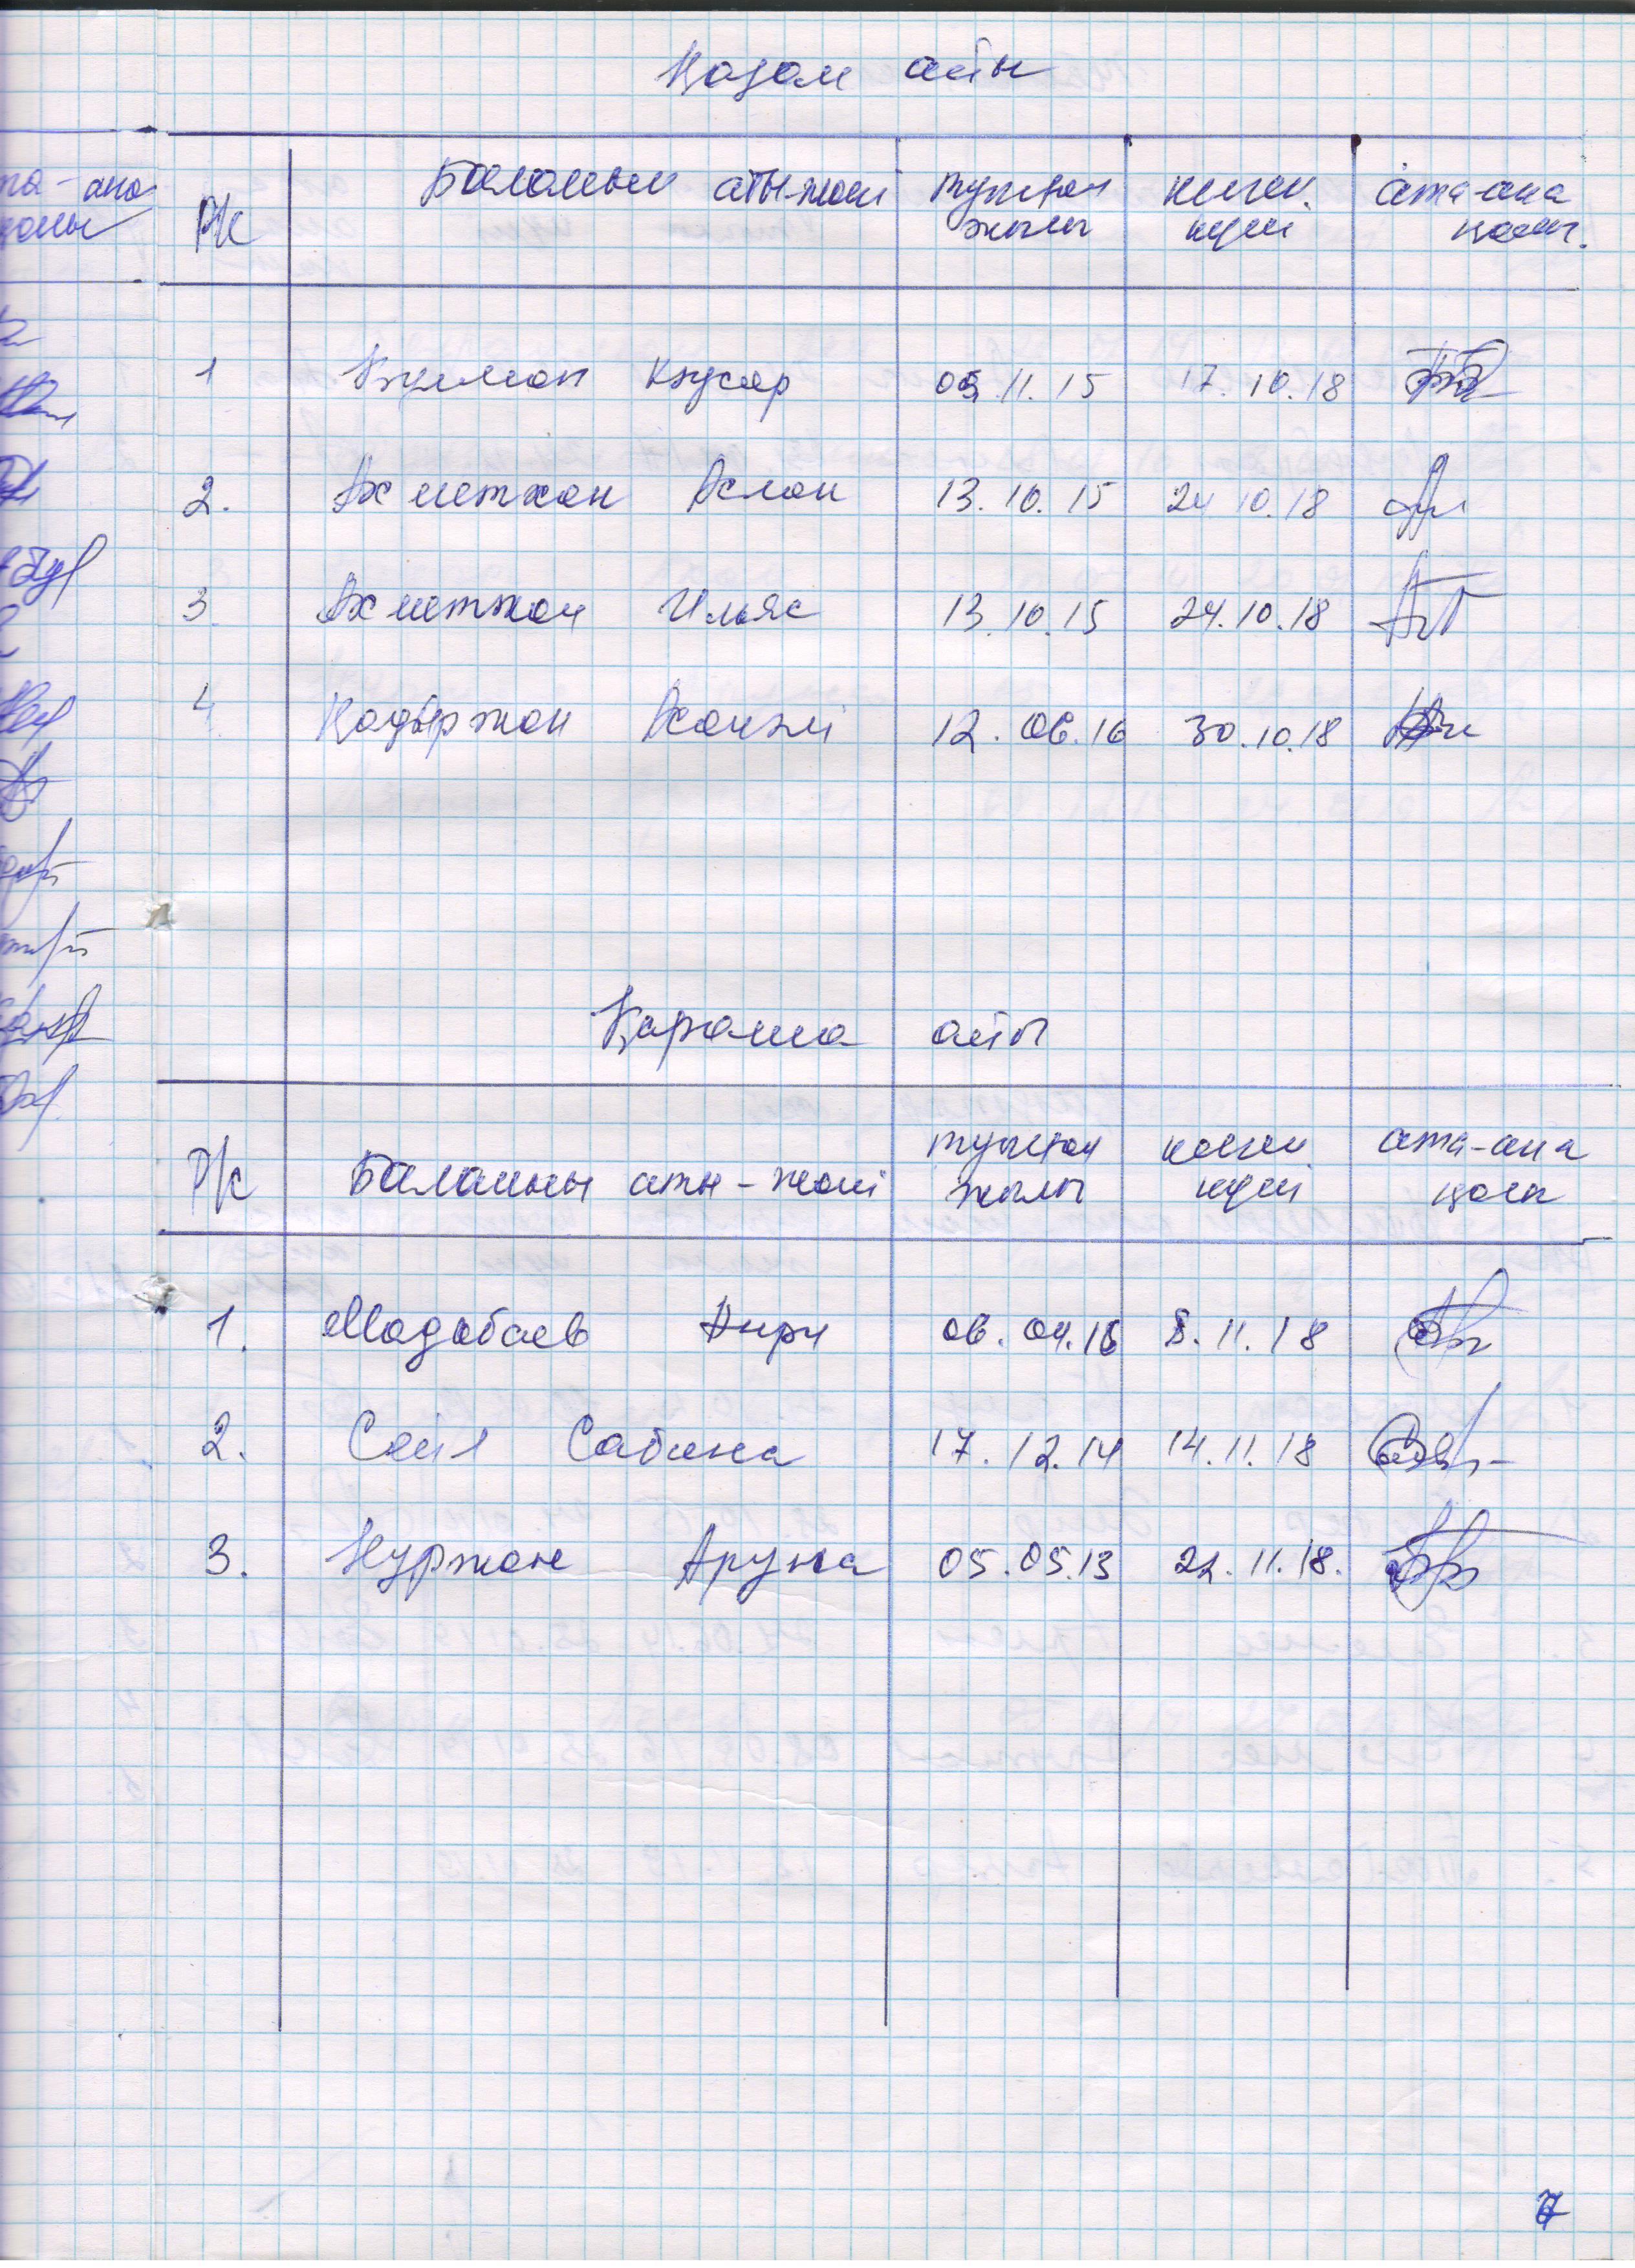 Қазан айы
Р/с Баланың аты-жөні туылған жылы келген күні ата-ана қолы.
1 05.11.15 17.10.18
2. Ахметжан Аслан 13.10.15 24.10.18
3. Ахметжан Ильяс 13.10.15 24.10.18
4. Кадыржан 12.06.16 30.10.18
Қараша айы
Р/с Баланың аты-жөні туылған жылы келген күні ата-ана қолы
1. Мадабаев 06.04.16 8.11.18
2. Сабина 17.12.14 14.11.18
3. Нуржан Аружа 05.05.13 22.11.18.
7